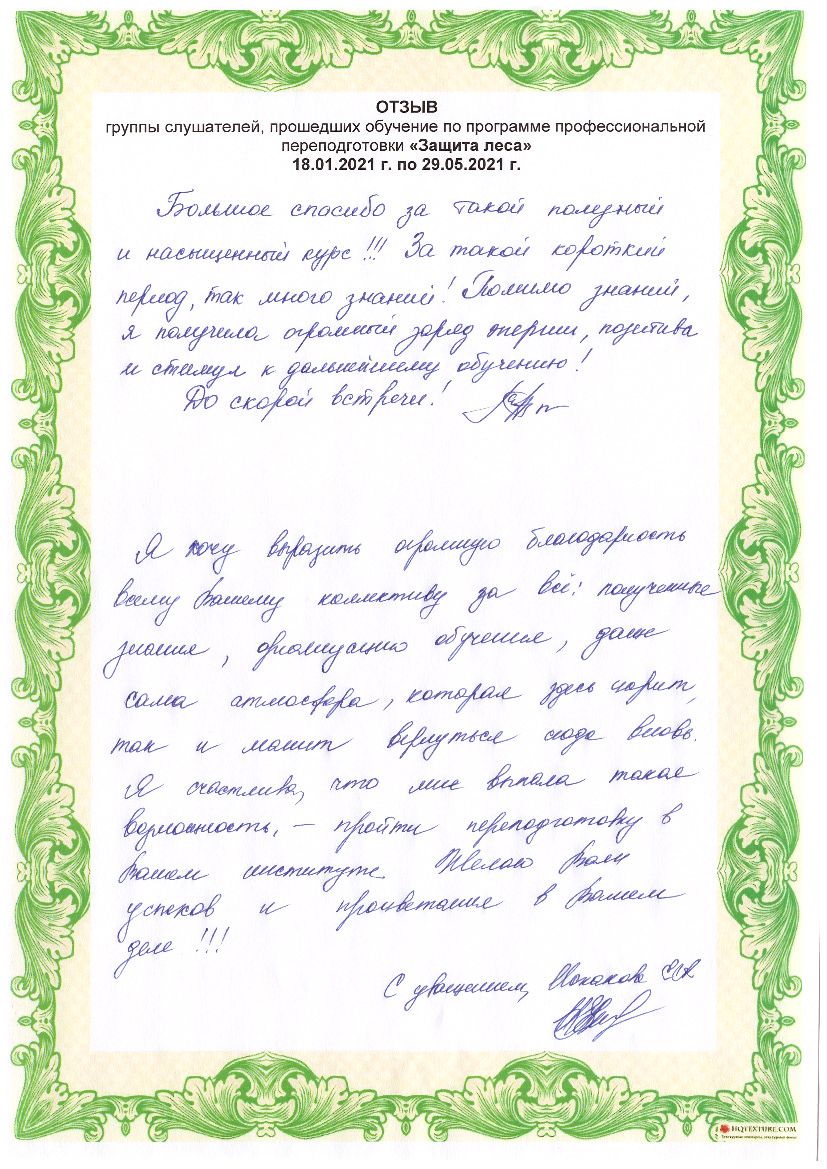 ОТЗЫВ
группы слушателей, прошедших обучение по программе профессиональной
переподготовки «Защита леса»
18.01.2021 г. по 29.05.2021 г.
Большое спасибо за такой полезный
и насыщенный курс!!! За такой короткий
период, так много знаний! Помимо знаний,
я получила огромный заряд энергии, позитива
и стимул к дальнейшему обучению!
До скорой встречи!
Я хочу выразить огромную благодарность
всему Вашему коллективу за всё: полученные
знания, организацию обучения, даже
сама атмосфера, которая здесь царит,
так и манит вернуться сюда вновь.
Я счастлива, что мне выпала такая
возможность, – пройти переподготовку в
Вашем институте. Желаю Вам
успехов и процветания в Вашем
деле!!!
С уважением,
HQTEXTURE.COM